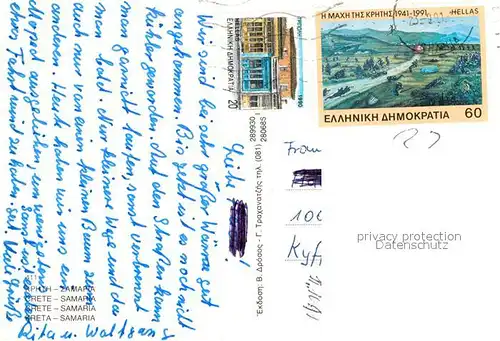 Η ΜΑΧΗ ΤΗΣ ΚΡΗΤΗΣ 1941-1991 HELLAS
ΕΛΛΗΝΙΚΗ ΔΗΜΟΚΡΑΤΙΑ
60
ΕΛΛΗΝΙΚΗ ΔΗΜΟΚΡΑΤΙΑ 20
1990
Liebe
Wir sind bei sehr großer Wärme gut
angekommen. Bis jetzt ist es noch nicht
kühler geworden. Auf den Straßen kann
man garnicht laufen, sonst verbrennt
man bald. Nur kleine Wege und da
auch nur von einem kleinen Baum zum
anderen. Heute haben wir uns ein
Moped ausgeliehen, um wenigstens
etwas Fahrtwind zu haben.
Viele Grüße
Rita u. Wolfgang
ΚΡΗΤΗ - ΣΑΜΑΡΙΑ
CRETE - SAMARIA
CRETE - SAMARIA
KRETA - SAMARIA
Έκδοση: Β. Δρόσος - Γ. Τραχανατζής τηλ. (081) 289930 | 280685
Frau
100
Kyf
privacy protection
Datenschutz